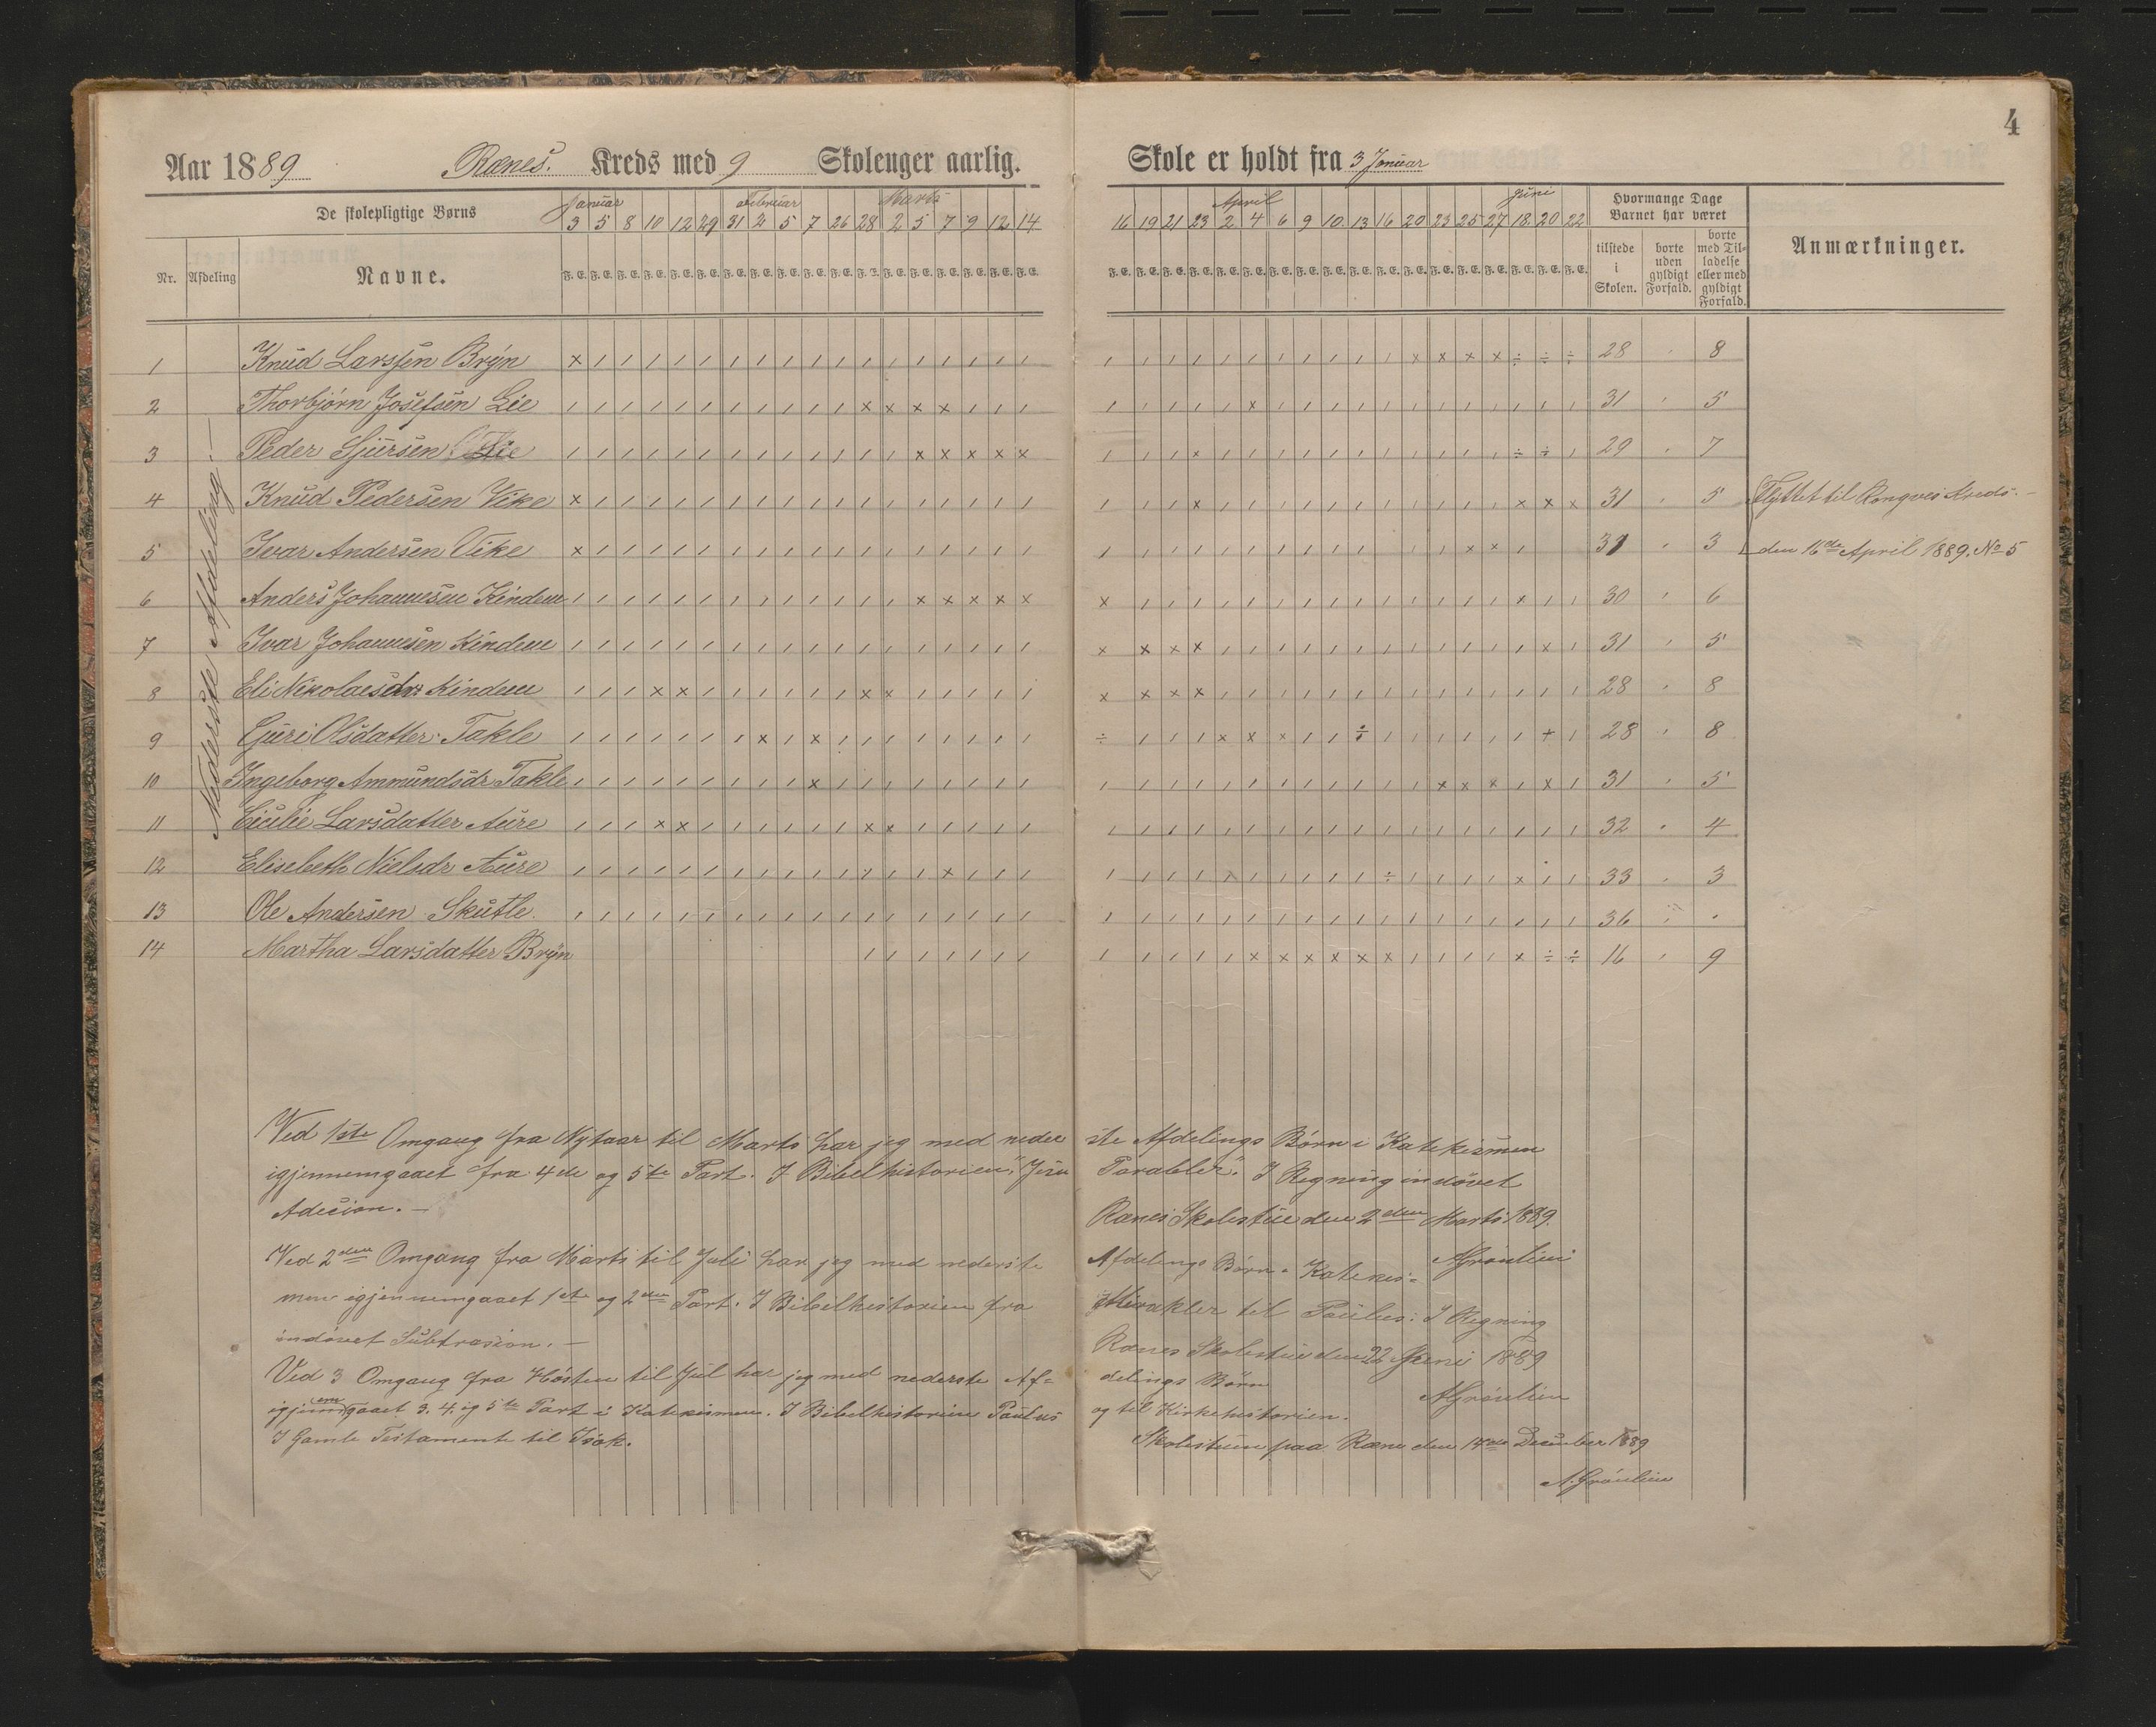 4
Aar 1889 Rænes. Kreds med 9 Skoleuger aarlig. Skole er holdt fra 3 Januar
De skolepligtige Børns
Januar Februar Marts
3 5 8 10 12 29 31 2 5 7 26 28 2 5 7 9 12 14
April Juni
16 19 21 23 2 4 6 9 10 13 16 20 23 25 27 18 20 22
Hvormange Dage Barnet har været
Nr. Afdeling Navne.
F. E. F. E. F. E. F. E. F. E. F. E. F. E. F. E. F. E. F. E. F. E. F. E. F. E. F. E. F. E. F. E. F. E. F. E.
F. E. F. E. F. E. F. E. F. E. F. E. F. E. F. E. F. E. F. E. F. E. F. E. F. E. F. E. F. E. F. E. F. E. F. E.
tilstede i Skolen.
borte uden gyldigt Forfald.
borte med Tilladelse eller med gyldigt Forfald.
Anmærkninger.
Nederste Afdeling.
1 Knud Larssen Bryn 28 . 8
2 Thorbjørn Josefsen Lie 31 . 5
3 Peder Sjursen Lie 29 . 7
4 Knud Pedersen Vike 31 . 5 Flyttet til Rongves Kreds.
5 Ivar Andersen Vike 31 . 3 den 16de April 1889. No 5
6 Anders Johannesen Kindem 30 . 6
7 Ivar Johannesen Kindem 31 . 5
8 Eli Nikolaesdtr Kindem 28 . 8
9 Guri Olsdatter Takle 28 . 8
10 Ingeborg Ammundsdr Takle 31 . 5
11 Cicilie Larsdatter Aure 32 . 4
12 Elisebeth Nielsdr Aure 33 . 3
13 Ole Andersen Skutle. 36 . .
14 Martha Larsdatter Bryn 16 . 9
Ved 1ste Omgang fra Nytaar til Marts har jeg med nederste Afdelings Børn i Katekismen
igjennemgaaet fra 4de og 5te Part. I Bibelhistorien "Jesu Parabler". I Regning indøvet
Adision.
Rænes Skolestue den 2den Marts 1889.
A Grønlien
Ved 2den Omgang fra Marts til Juli har jeg med nederste Afdelings Børn i Katekis=
men igjennemgaaet 1ste og 2den Part. I Bibelhistorien fra Mirakler til Paulus: I Regning
indøvet Subtrasion.
Rænes Skolestue den 22 Juni 1889
A Grønlien
Ved 3 Omgang fra Høsten til Jul har jeg med nederste Af=delings Børn
igjennemgaaet 3. 4. og 5te Part i Katekismen. I Bibelhistorien Paulus og til Kirkehistorien.
I Gamle Testamente til Isak.
Skolestuen paa Ræne den 14de December 1889
A. Grønlien